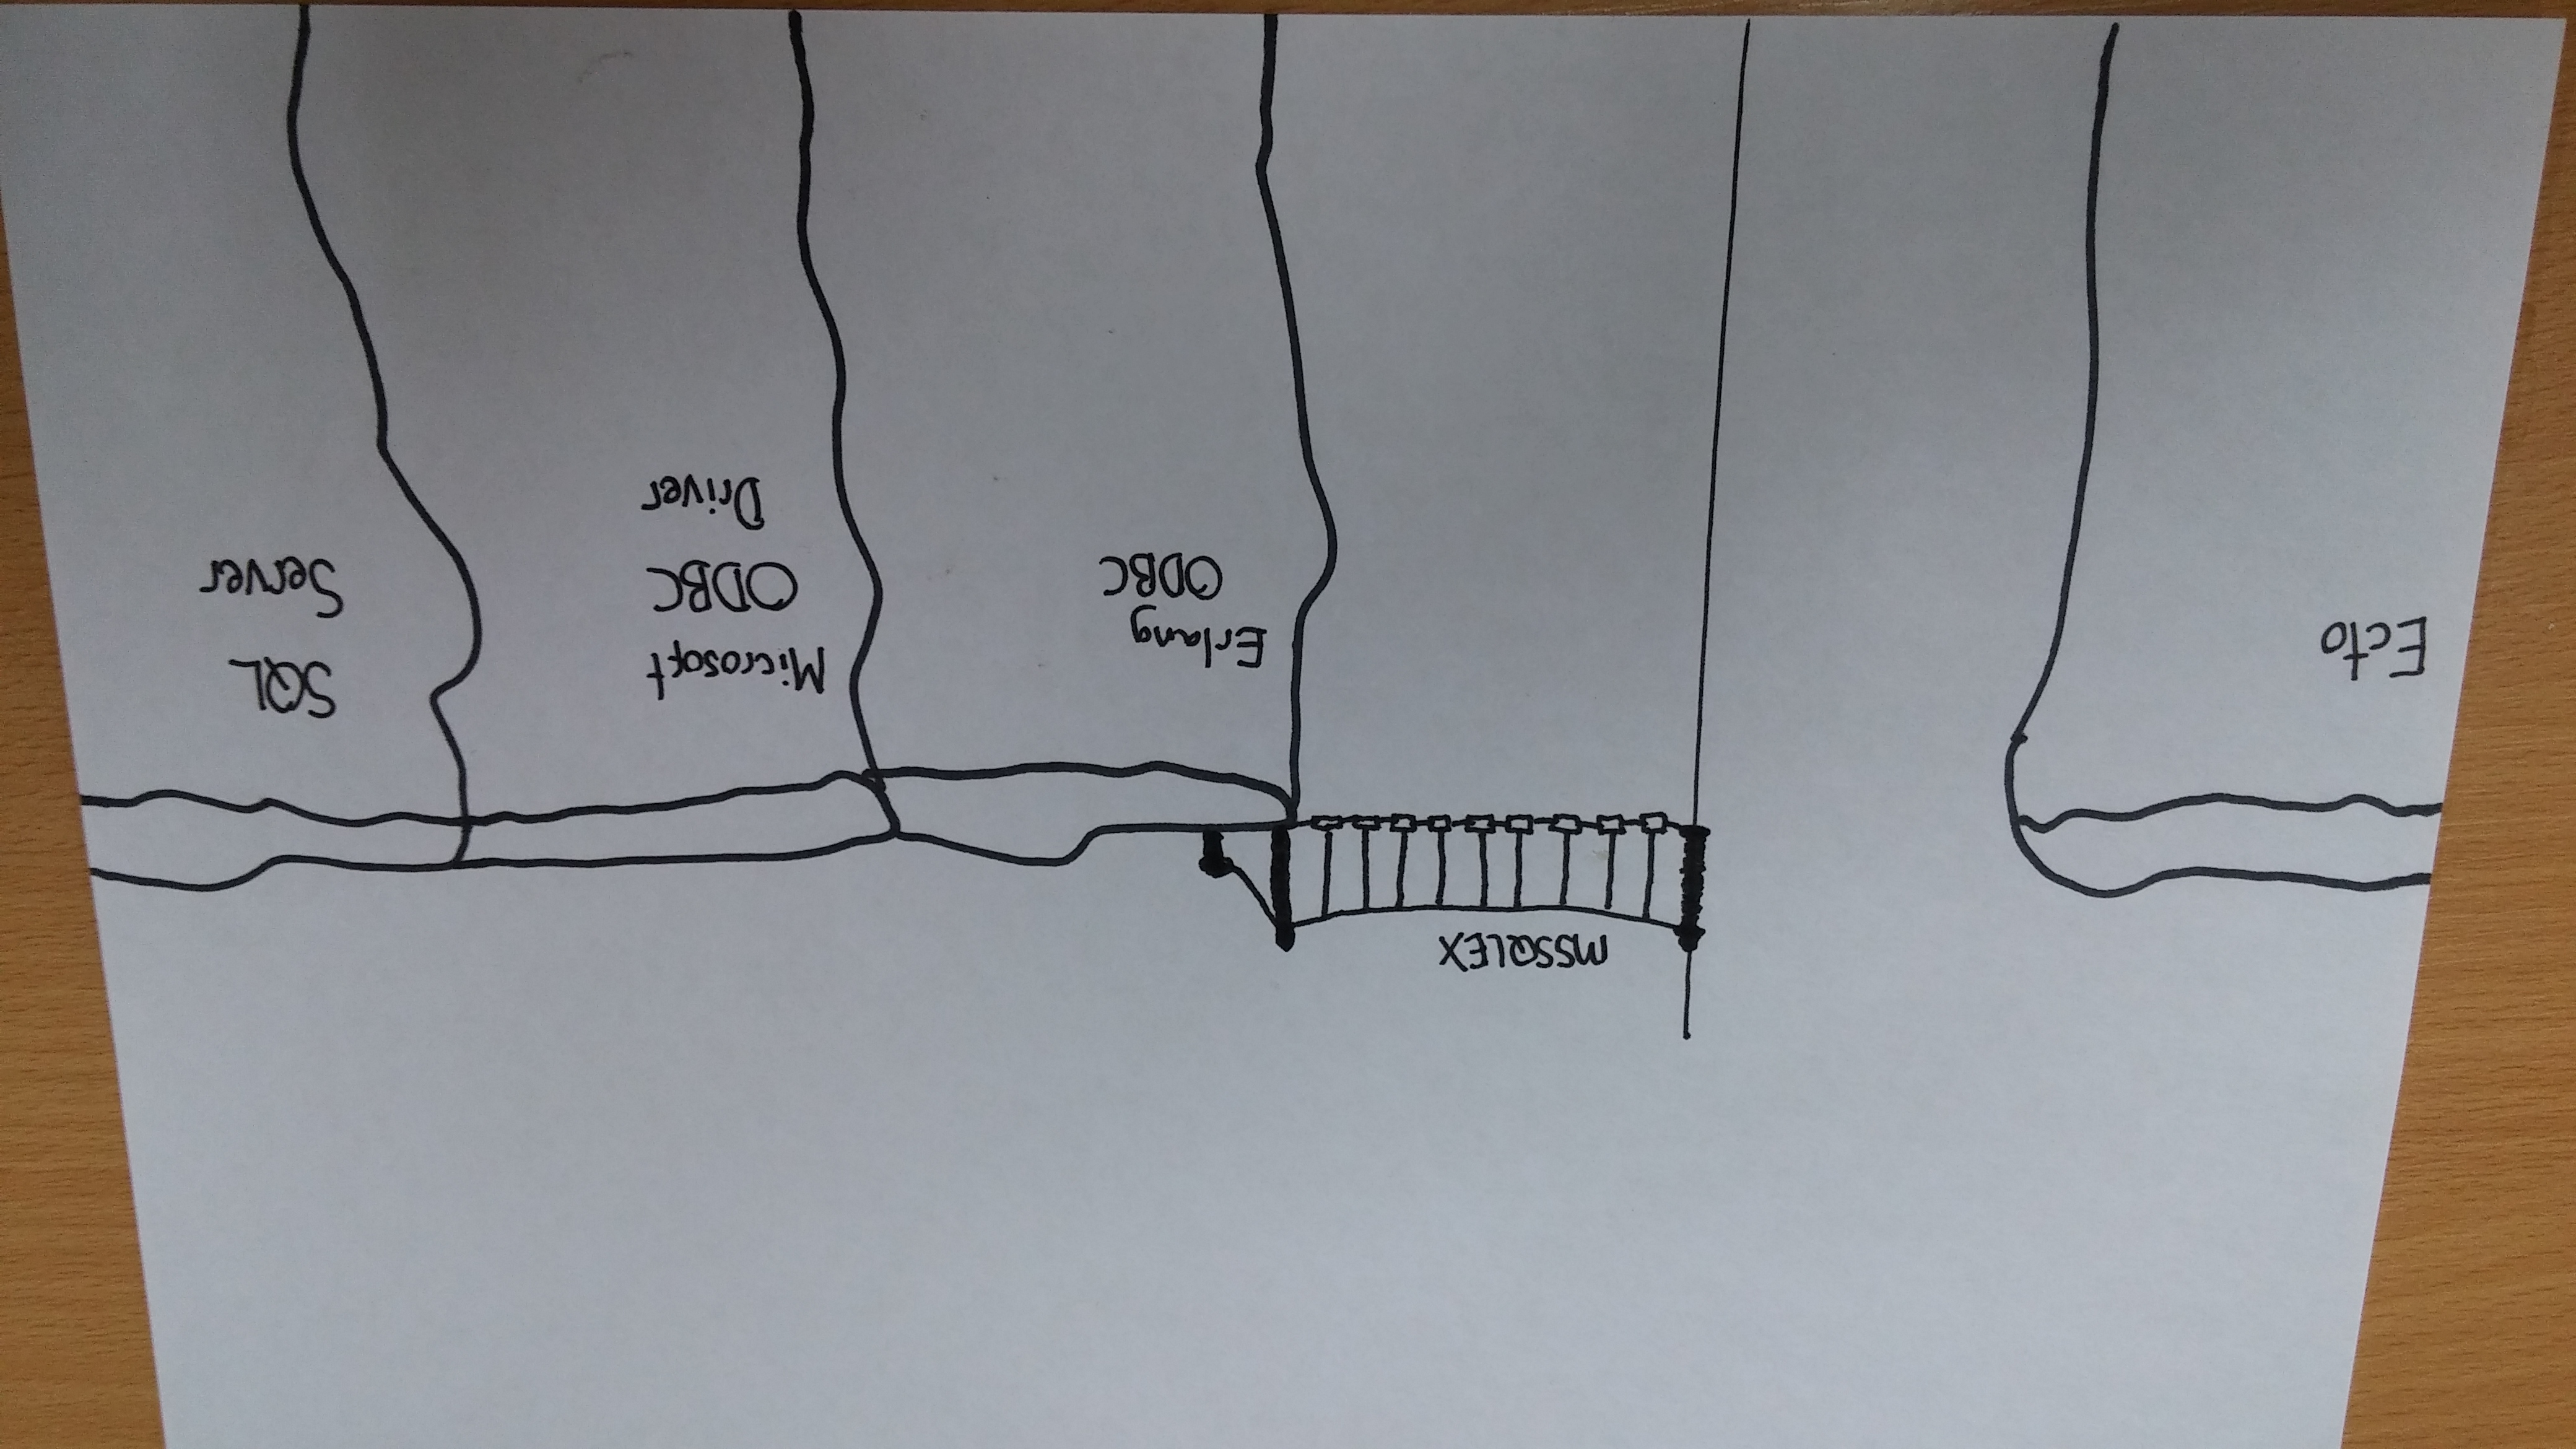 MSSQLEX
Ecto
Erlang
ODBC
Microsoft
ODBC
Driver
SQL
Server